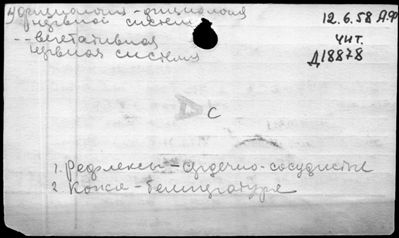 физиология
нервной систем
-- вегетативная
нервная система
12.6.58 А.Ф
Чит.
Д18878
С
1. Рефлексы - сердечно-сосудистые
2 Кожа - температура